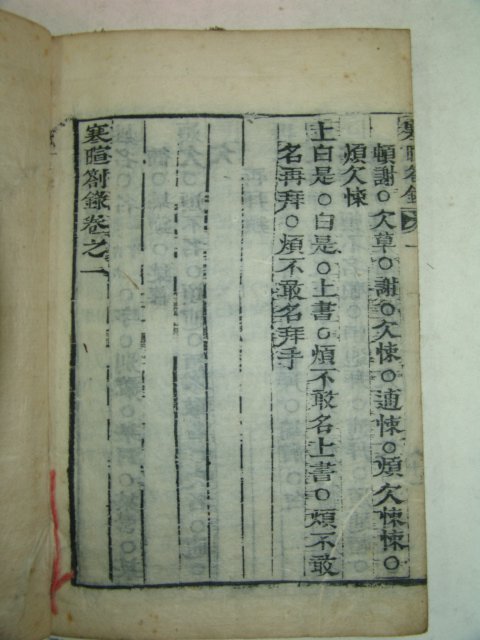 頓謝○欠草○謝○欠悚○逋悚○煩欠悚悚○
煩欠悚
上白是○白是○上書○煩不敢名上書○煩不敢
名再拜○煩不敢名拜手
寒暄箚錄卷之一